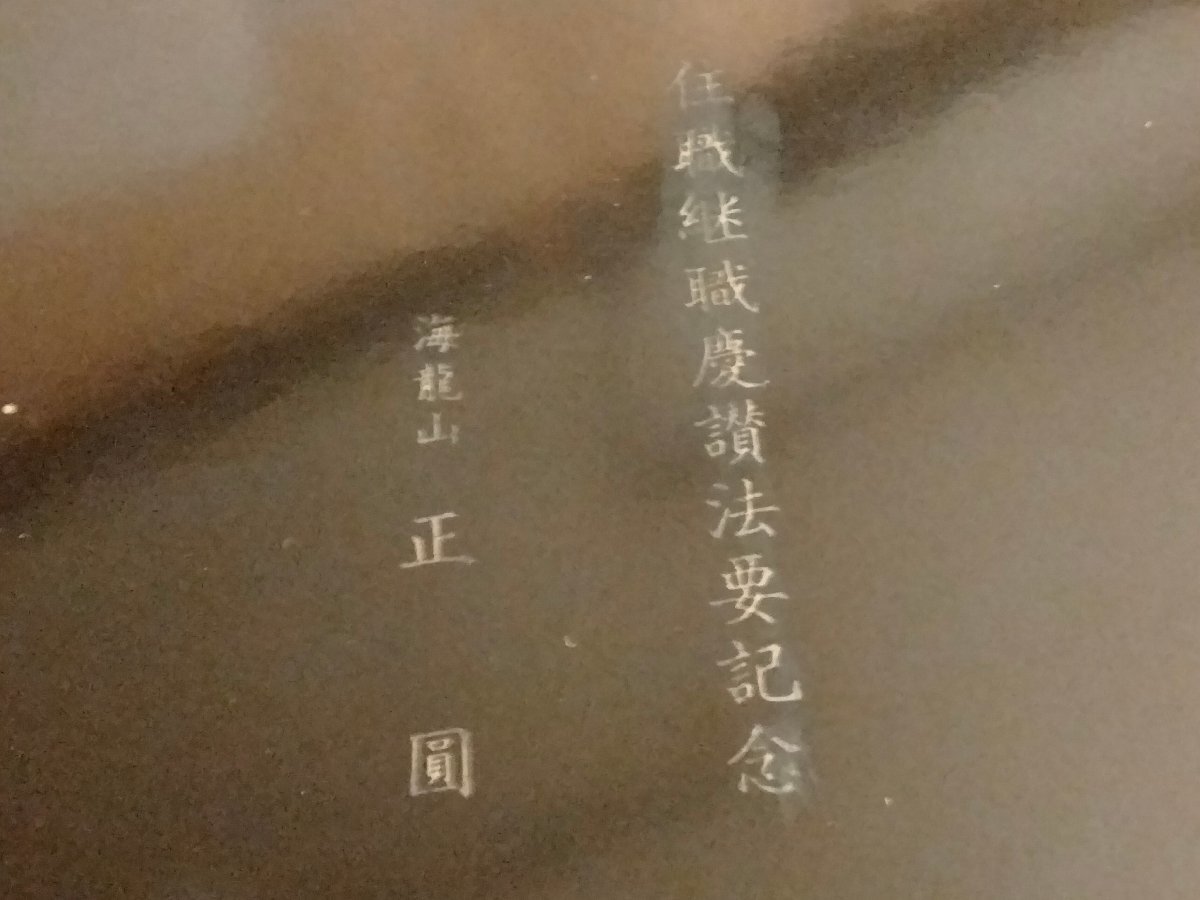 住職継職慶讃法要記念
海龍山 正圓